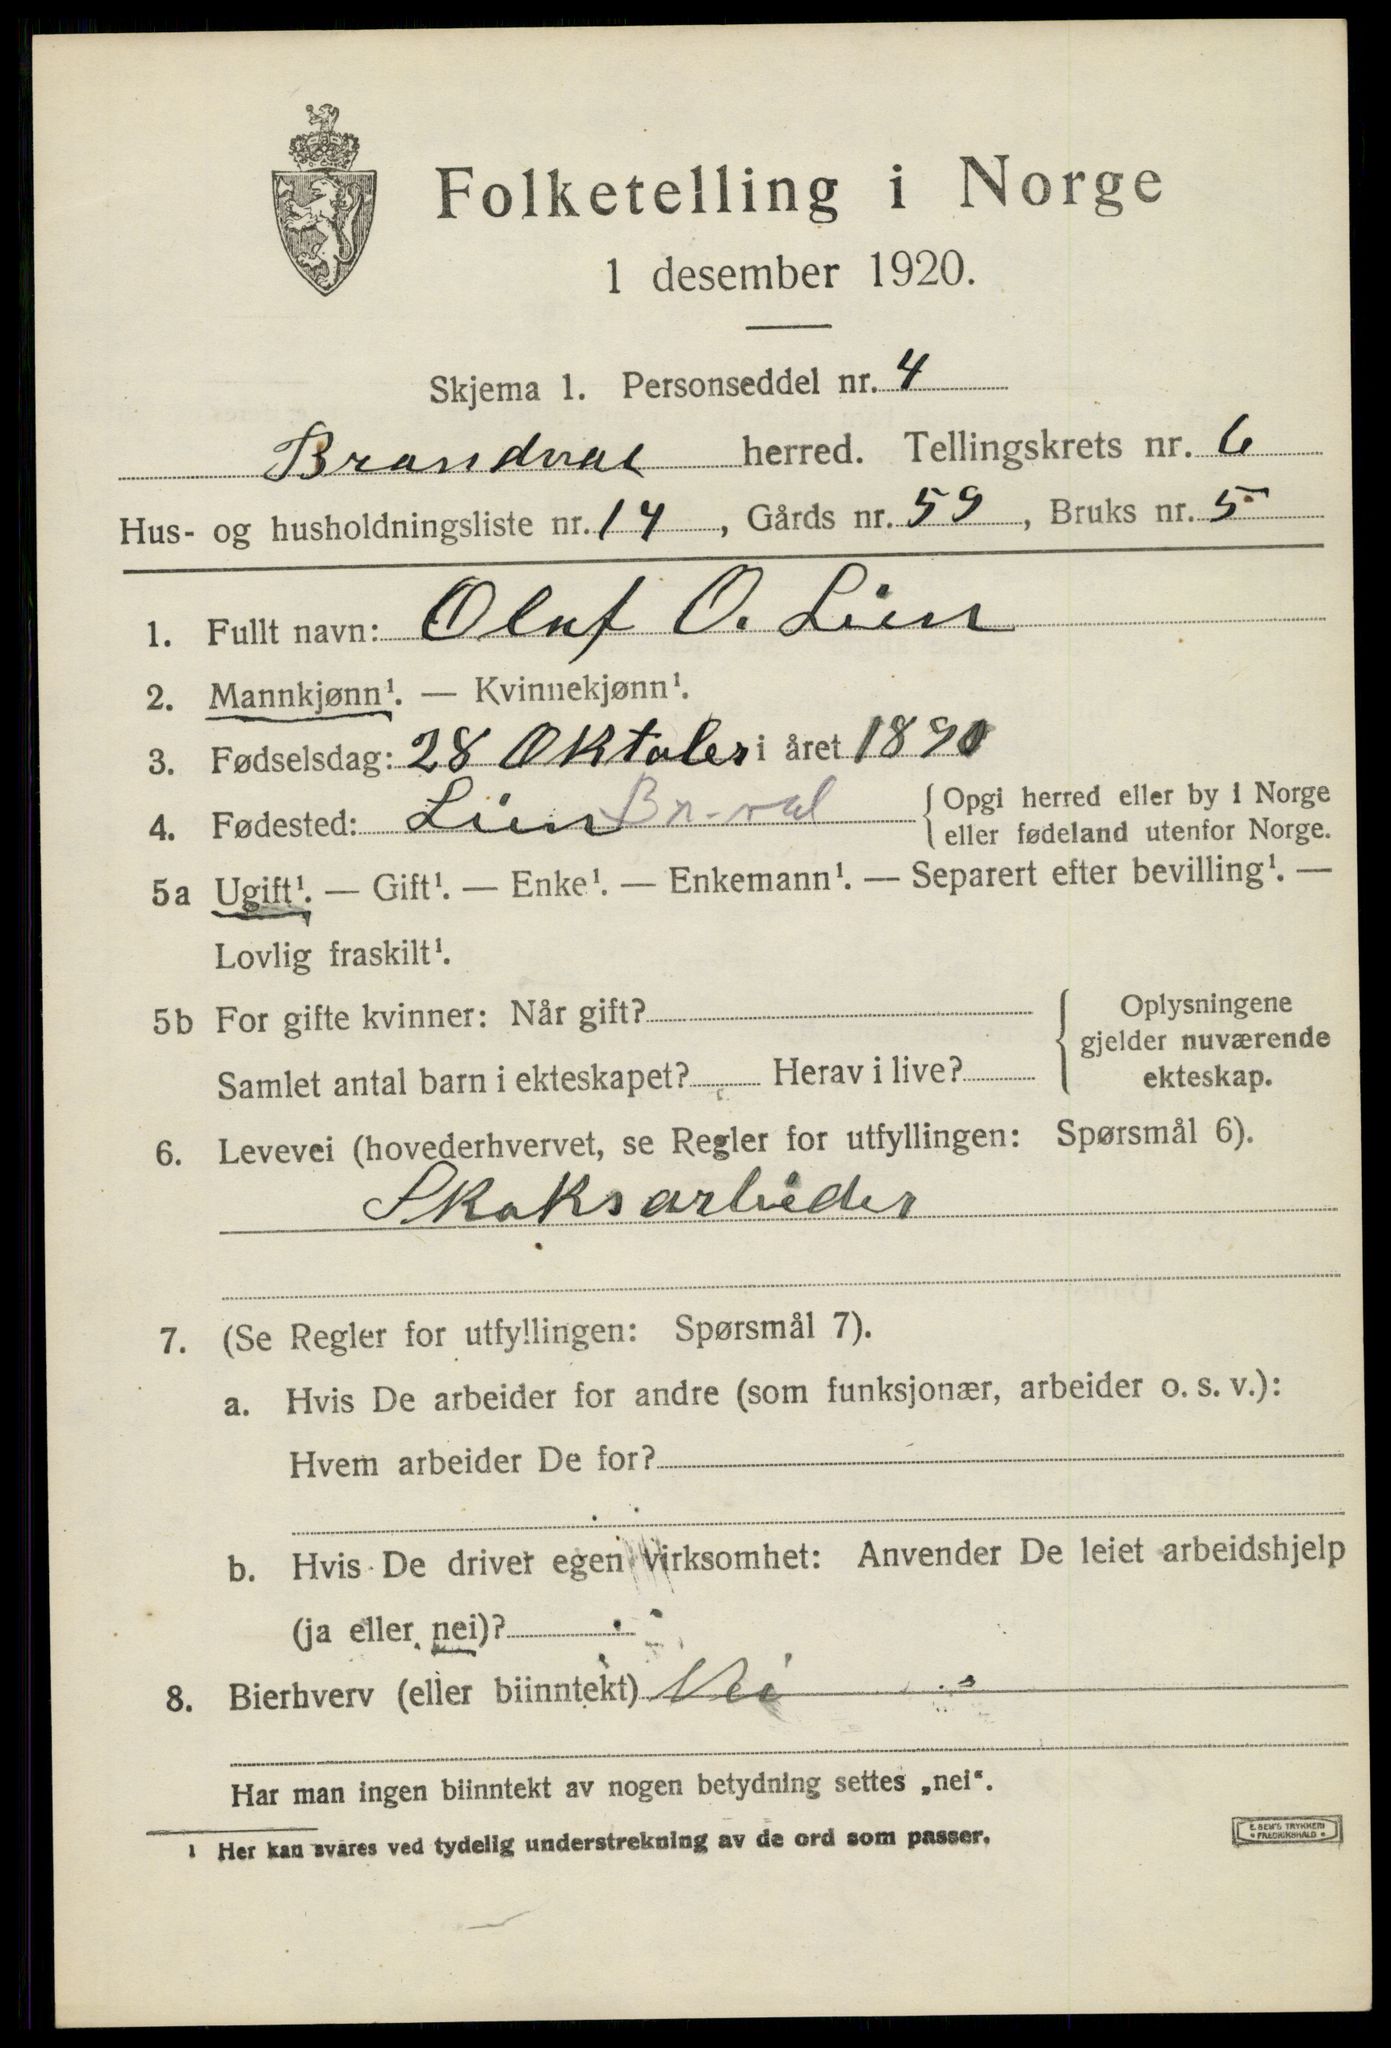 Folketelling i Norge
1 desember 1920.
Skjema 1. Personseddel nr. 4
Brandval herred. Tellingskrets nr. 6
Hus- og husholdningsliste nr. 14, Gårds nr. 59, Bruks nr. 5
1. Fullt navn: Olaf O. Lien
2. Mannkjønn¹. — Kvinnekjønn¹.
3. Fødselsdag: 28 Oktober i året 1890
4. Fødested: Lien Br-val { Opgi herred eller by i Norge
eller fødeland utenfor Norge.
5a Ugift¹. — Gift¹. — Enke¹. — Enkemann¹. — Separert efter bevilling¹. —
Lovlig fraskilt¹.
5b For gifte kvinner: Når gift? { Oplysningene
gjelder nuværende
Samlet antal barn i ekteskapet? Herav i live? ekteskap.
6. Levevei (hovederhvervet, se Regler for utfyllingen: Spørsmål 6).
Skoksarbeider
7. (Se Regler for utfyllingen: Spørsmål 7).
a. Hvis De arbeider for andre (som funksjonær, arbeider o. s. v.):
Hvem arbeider De for?
b. Hvis De driver egen virksomhet: Anvender De leiet arbeidshjelp
(ja eller nei)?
8. Bierhverv (eller biinntekt) Nei
Har man ingen biinntekt av nogen betydning settes „nei“.
¹ Her kan svares ved tydelig understrekning av de ord som passer.
E. SEM'S TRYKKERI
FREDRIKSHALD